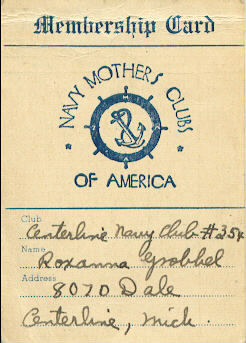 Membership Card
NAVY MOTHERS CLUBS
OF AMERICA
Club
Centerline Navy Club #354
Name
Roxanna Grobbel
Address
8070 Dale
Centerline, Mich.